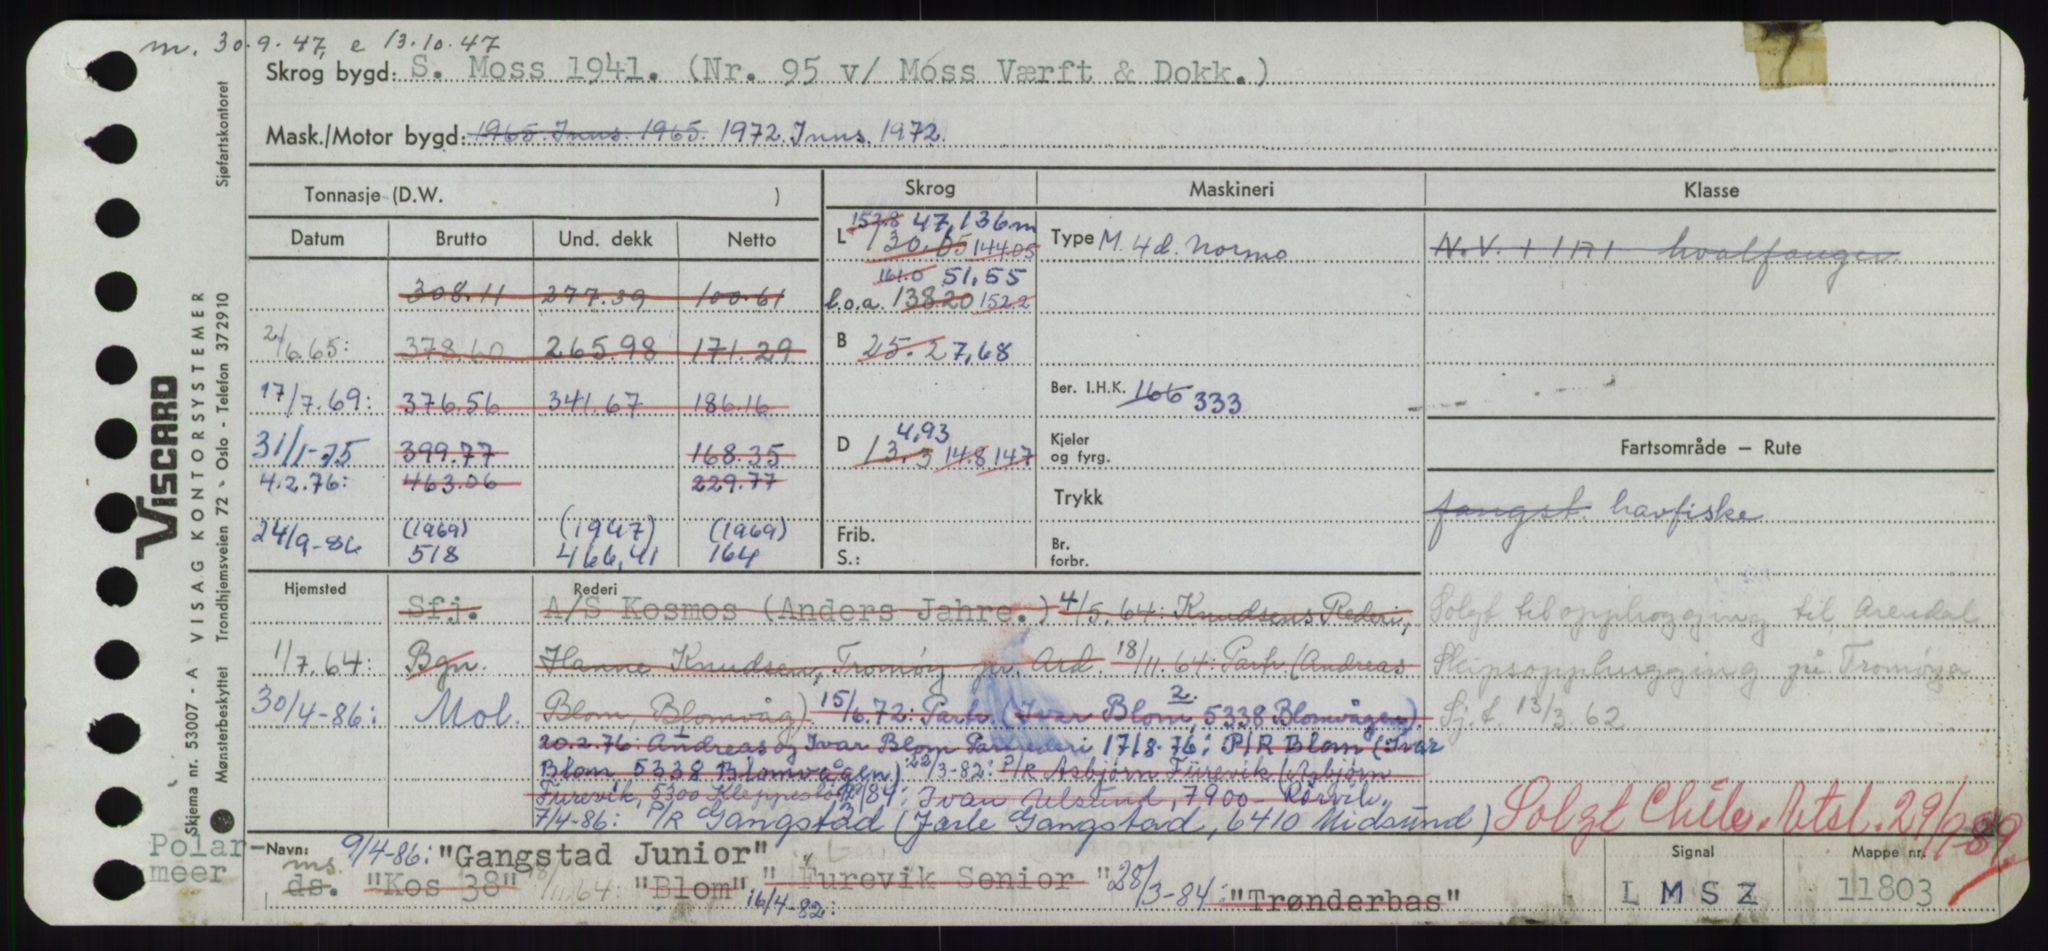 m. 30.9.47, e 13.10.47
Skrog bygd: S. Moss 1941. (Nr. 95 v/ Moss Værft & Dokk.)
Mask./Motor bygd: 1965. Inns. 1965. 1972. Inns. 1972.
Tonnasje (D.W. )
Skrog
Maskineri
Klasse
Datum Brutto Und. dekk Netto
308.11 277.39 100.61
2/6.65: 378.60 265.98 171.29
17/7.69: 376.56 341.67 186.16
31/1-75 399.77 168.35
4.2.76: 463.06 229.77
24/9-86 (1969) 518 (1947) 466,41 (1969) 164
L 157.8 47,136m
130.65 144.05
161.0 51,55
l.o.a. 138.20 152.2
B 25.2 7,68
4,93
D 13.3 14.8 147
Frib.
S.:
Type M. 4d. Normo
Ber. I.H.K. 166 333
Kjeler
og fyrg.
Trykk
Br.
forbr.
N.V. + 1A1 hvalfanger
Fartsområde – Rute
fangst. havfiske
Hjemsted
Rederi
Sfj. A/S Kosmos (Anders Jahre.) 4/5.64: Knudsens Rederi,
1/7.64: Bgn. Hanne Knudsen, Tromøy pr. Ard. 18/11.64: Partr. (Andreas
30/4-86: Mol. Blom, Blomvåg) 15/6.72: Partr. (Ivar Blom, 5338 Blomvågen) 2.
20.2.76 Andreas og Ivar Blom Partrederi 17/8.76: P/R Blom (Ivar
Blom, 5338 Blomvågen) 22/3-82: P/R Asbjørn Furevik (Asbjørn
Furevik, 5300 Kleppestø) /84: Ivan Ulsund, 7900 Rørvik.
7/4-86: P/R Gangstad (Jarle Gangstad, 6410 Midsund)
Solgt til opphogging til Arendal
Skipsopphugging på Tromøya
Sj.t. 13/3.62
Solgt Chile. Utsl. 29/9-89
Navn: 9/4-86: "Gangstad Junior"
ms.
ds. "Kos 38" 18/11.64: "Blom" 16/4-82: "Furevik Senior" 28/3-84: "Trønderbas"
Polarmeer
Signal
L M S Z
Mappe nr.
11803
VISCARD
Skjema nr. 53007 - A VISAG KONTORSYSTEMER
Mønsterbeskyttet Trondhjemsveien 72 - Oslo - Telefon 372910
Sjøfartskontoret